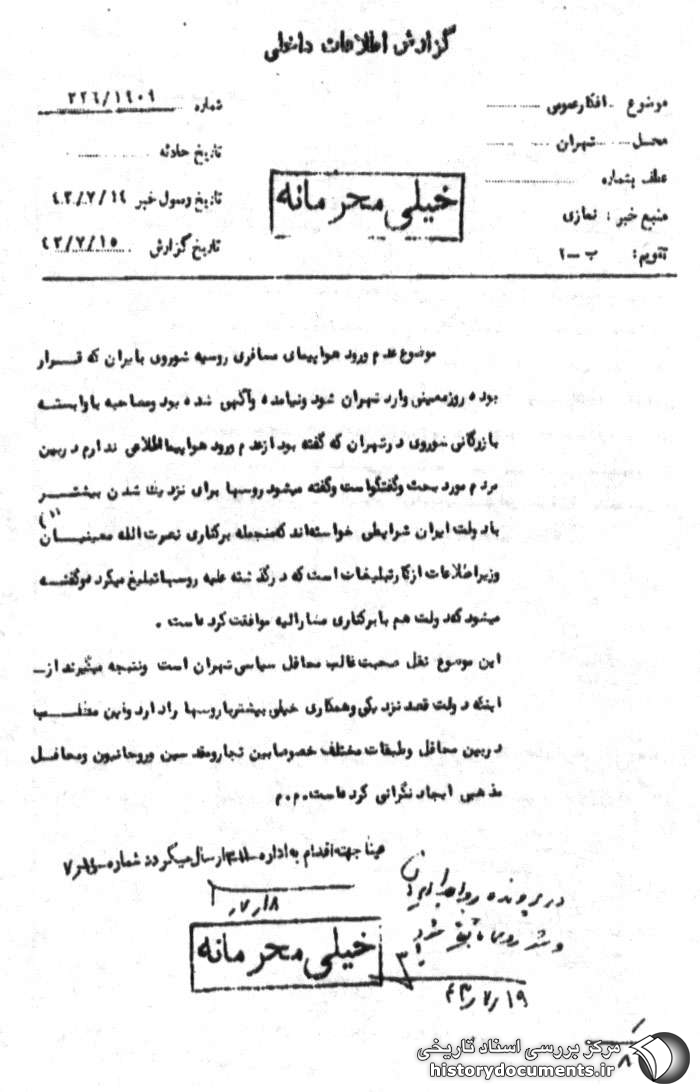 گزارش اطلاعات داخلی
موضوع افکار عمومی
شماره ۳۲۶/۱۹۰۹
محل تهران
تاریخ حادثه
عطف بشماره
خیلی محرمانه
تاریخ وصول خبر ۴۳/۷/۱۴
منبع خبر : نمازی
تاریخ گزارش ۴۳/۷/۱۵
تقویم: ب – ۲
موضوع عدم ورود هواپیمای مسافری روسیه شوروی بایران که قرار
بوده روز معینی وارد تهران شود و نیامده و آگهی شده بود و مصاحبه با وابسته
بازرگانی شوروی در تهران که گفته بود از عدم ورود هواپیما اطلاعی ندارم در بین
مردم مورد بحث و گفتگو است و گفته میشود روسها برای نزدیک شدن بیشتر
با دولت ایران شرایطی خواسته‌اند که منجمله برکناری نصرت الله معینیان (۱)
وزیر اطلاعات از کار تبلیغات است که در گذشته علیه روسها تبلیغ میکرده و گفته
میشود که دولت هم با برکناری مشارالیه موافقت کرده است .
این موضوع نقل صحبت غالب محافل سیاسی تهران است و نتیجه میگیرند از
اینکه دولت قصد نزدیکی و همکاری خیلی بیشتر با روسها را دارد و این مطلب
در بین محافل و طبقات مختلف خصوصا بین تجار و مقدسین و روحانیون و محافل
مذهبی ایجاد نگرانی کرده است.م.م
عینا جهته اقدام به اداره ارسال میگردد شماره
۷/۱۸
در پرونده روابط ایران
و شوروی بایگانی شود
۴۳/۷/۱۹
خیلی محرمانه
۸
مرکز بررسی اسناد تاریخی
historydocuments.ir